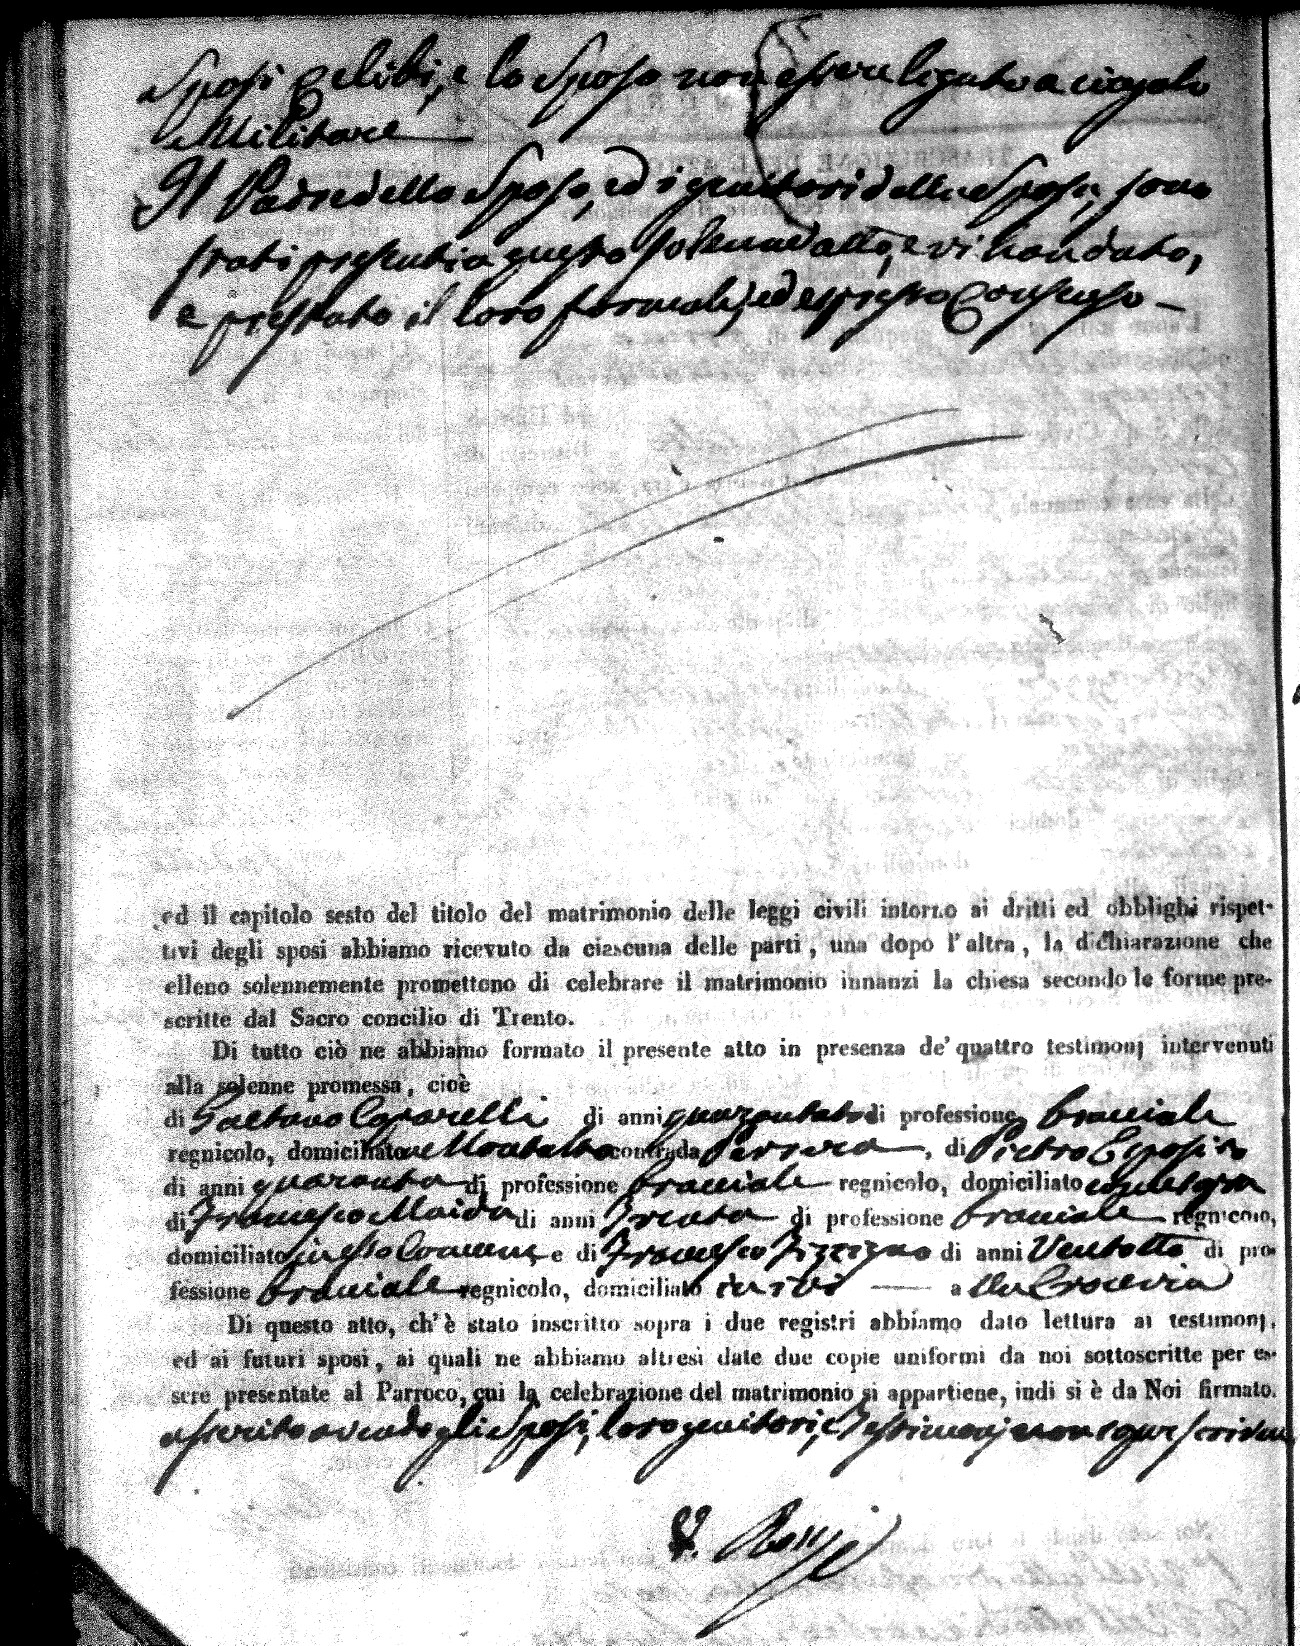 Sposi Celibi, e lo Sposo non essere ligato a cingolo
Militare
Il Padre dello Sposo, ed i genitori della Sposa, sono
stati presenti a questo solenne atto, e vi han dato,
e prestato il loro formale, ed espresso Consenso
ed il capitolo sesto del titolo del matrimonio delle leggi civili intorno ai dritti ed obblighi rispet-
tivi degli sposi abbiamo ricevuto da ciascuna delle parti, una dopo l'altra, la dichiarazione che
elleno solennemente promettono di celebrare il matrimonio innanzi la chiesa secondo le forme pre-
scritte dal Sacro concilio di Trento.
Di tutto ciò ne abbiamo formato il presente atto in presenza de' quattro testimonj intervenuti
alla solenne promessa, cioè
di Gaetano di anni di professione bracciale
regnicolo, domiciliato Montalto contrada, di Pietro Esposito
di anni quaranta di professione bracciale regnicolo, domiciliato
di Francesco Maida di anni Trenta di professione bracciale regnicolo,
domiciliato in esso Comune e di Francesco di anni Ventotto di pro-
fessione bracciale regnicolo, domiciliato ivi alla Crocevia
Di questo atto, ch'è stato inscritto sopra i due registri abbiamo dato lettura ai testimonj,
ed ai futuri sposi, ai quali ne abbiamo altresì date due copie uniformi da noi sottoscritte per es-
sere presentate al Parroco, cui la celebrazione del matrimonio si appartiene, indi si è da Noi firmato.
asserito avendo gli Sposi, loro genitori, e Testimonj non saper scrivere
Rossi